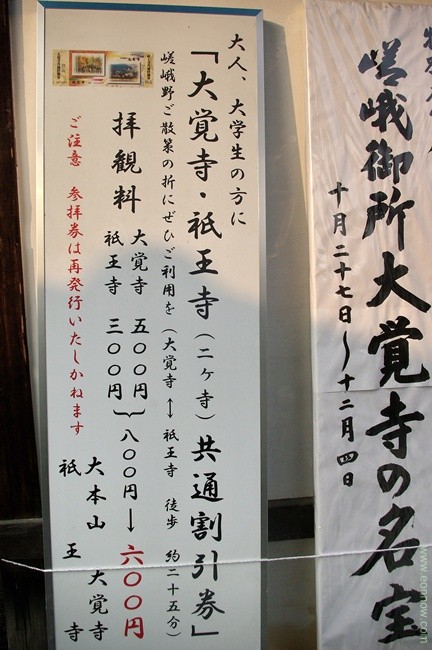 嵯峨御所大覚寺の名宝
十月二十七日〜十二月四日
大人、大学生の方に
「大覚寺・祇王寺(二ヶ寺)共通割引券」
嵯峨野ご散策の折にぜひご利用を(大覚寺↔祇王寺 徒歩 約二十五分)
拝観料 大覚寺 五〇〇円
祇王寺 三〇〇円
八〇〇円→六〇〇円
ご注意 参拝券は再発行いたしかねます
大本山 大覚寺
祇王寺
www.eonnow.com